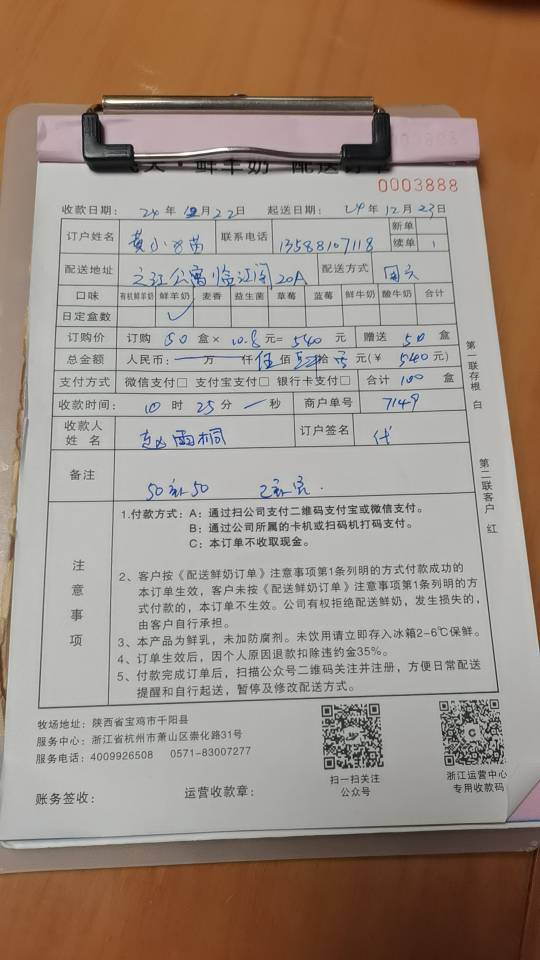 鲜牛奶 配送订单
0003888
收款日期： 24 年 12 月 22 日 起送日期： 24 年 12 月 23 日
订户姓名 黄小 苗 联系电话 13588107118 新单
续单 1
配送地址 之江公寓临江阁20A 配送方式
口味 有机鲜羊奶 鲜羊奶 麦香 益生菌 草莓 蓝莓 鲜牛奶 酸牛奶 合计
日定盒数 ✓
订购价 订购 50 盒× 10.8 元= 540 元 赠送 50 盒
总金额 人民币： 万 仟 伍 佰 肆 拾 元(￥ 540 元)
支付方式 微信支付□ 支付宝支付□ 银行卡支付□ 合计 100 盒
收款时间： 10 时 25 分 秒 商户单号 7149
收款人姓名 赵雨桐 订户签名 代
备注 50送50
第一联存根 白
第二联客户 红
注意事项
1.付款方式：A：通过扫公司支付二维码支付宝或微信支付。
B：通过公司所属的卡机或扫码机打码支付。
C：本订单不收取现金。
2、客户按《配送鲜奶订单》注意事项第1条列明的方式付款成功的
本订单生效，客户未按《配送鲜奶订单》注意事项第1条列明的方
式付款的，本订单不生效。公司有权拒绝配送鲜奶，发生损失的，
由客户自行承担。
3、本产品为鲜乳，未加防腐剂。未饮用请立即存入冰箱2-6℃保鲜。
4、订单生效后，因个人原因退款扣除违约金35%。
5、付款完成订单后，扫描公众号二维码关注并注册，方便日常配送
提醒和自行起送，暂停及修改配送方式。
牧场地址：陕西省宝鸡市千阳县
服务中心：浙江省杭州市萧山区崇化路31号
服务电话：4009926508 0571-83007277
扫一扫关注
公众号
浙江运营中心
专用收款码
账务签收： 运营收款章：